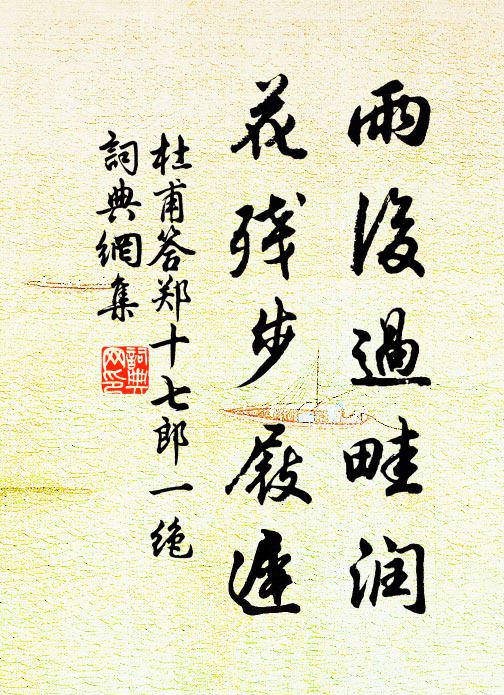 雨後過畦润
花残步屐遲
杜甫答郑十七郎一绝
詞典網集
詞典
网印